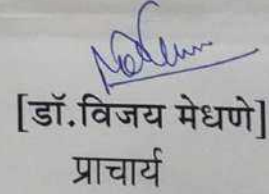 [डॉ.विजय मेधणे]
प्राचार्य